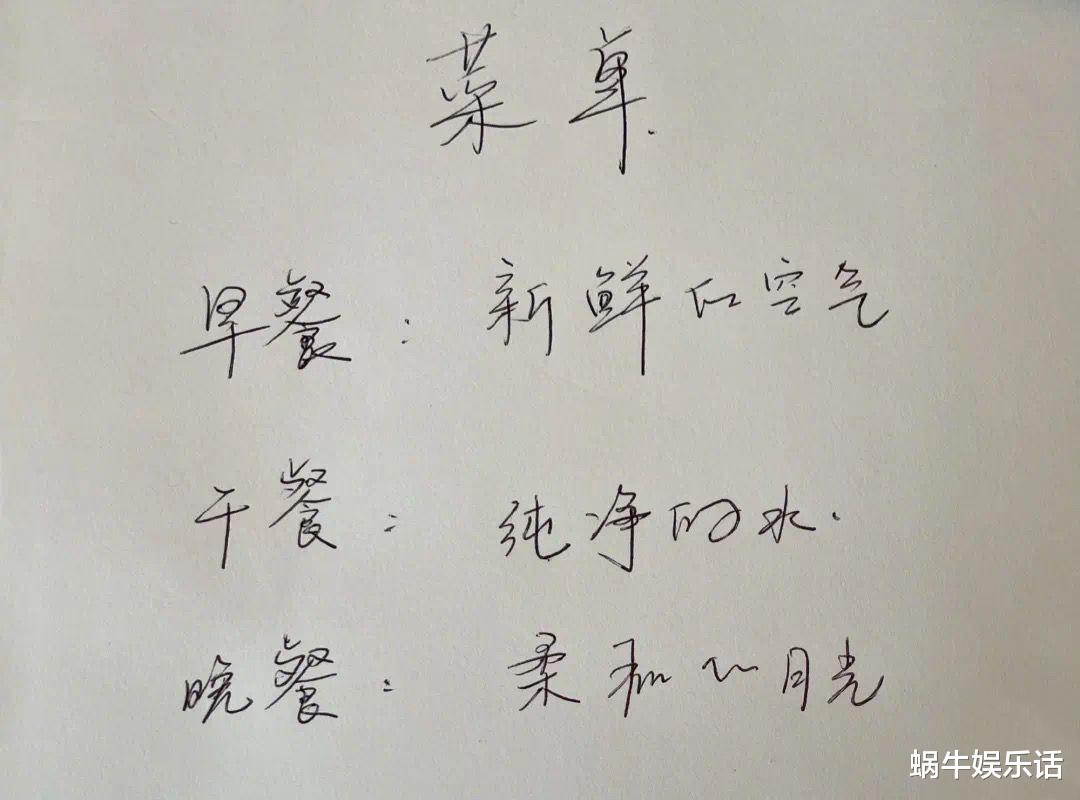 菜单.
早餐：新鲜的空气
午餐：纯净的水.
晚餐：柔和的月光
蜗牛娱乐话